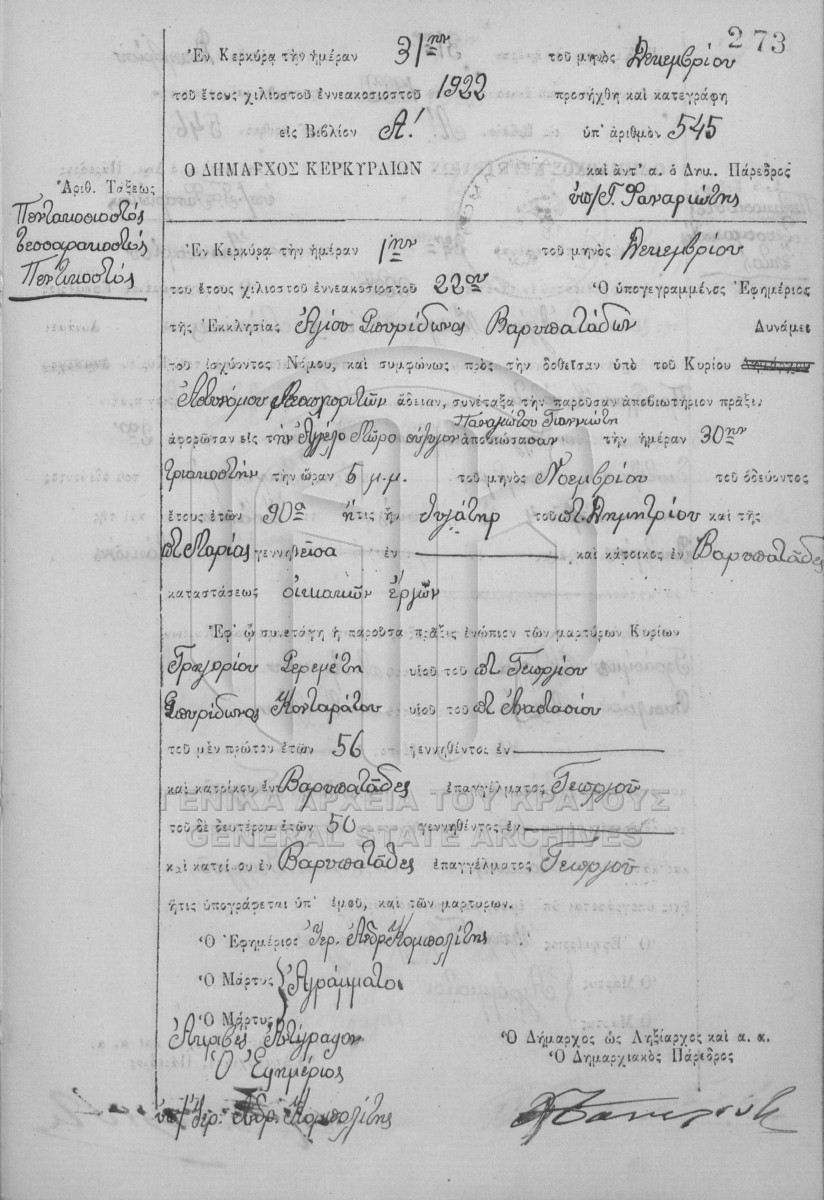 273
Ἐν Κερκύρᾳ τὴν ἡμέραν 31ην τοῦ μηνὸς Δεκεμβρίου
τοῦ ἔτους χιλιοστοῦ ἐννεακοσιοστοῦ 1922 προσήχθη καὶ κατεγράφη
εἰς Βιβλίον Α! ὑπ' ἀριθμὸν 545
Ὁ ΔΗΜΑΡΧΟΣ ΚΕΡΚΥΡΑΙΩΝ καὶ ἀντ' α. ὁ Δημ. Πάρεδρος
ὑπ/Γ. Φαναριώτης
Ἀριθ. Τάξεως
Πεντακοσιοστός
τεσσαρακοστός
Πεντικοστός
Ἐν Κερκύρᾳ τὴν ἡμέραν 1ην τοῦ μηνὸς Δεκεμβρίου
τοῦ ἔτους χιλιοστοῦ ἐννεακοσιοστοῦ 22ου Ὁ ὑπογεγραμμένος Ἐφημέριος
τῆς Ἐκκλησίας Ἁγίου Σπυρίδωνος Βαρυπατάδων Δυνάμει
τοῦ ἰσχύοντος Νόμου, καὶ συμφώνως πρὸς τὴν δοθεῖσαν ὑπὸ τοῦ Κυρίου
Ἀστυνόμου ἄδειαν, συνέταξα τὴν παροῦσαν ἀποβιωτήριον πρᾶξιν
Παναγιώτου Γιαννιώτη
ἀφορῶσαν εἰς τὴν Ἀγγέλω σύζυγον ἀποβιώσασαν τὴν ἡμέραν 30ην
τριακοστὴν τὴν ὥραν 5 μ.μ. τοῦ μηνὸς Νοεμβρίου τοῦ ὁδεύοντος
ἔτους ἐτῶν 90α ἥτις ἦν θυγάτηρ τοῦ πτ. Δημητρίου καὶ τῆς
πτ Μαρίας γεννηθεῖσα ἐν καὶ κάτοικος ἐν Βαρυπατᾶδες
καταστάσεως οἰκιακῶν ἔργων
Ἐφ' ᾧ συνετάγη ἡ παροῦσα πρᾶξις ἐνώπιον τῶν μαρτύρων Κυρίων
Γρηγορίου Σερεμέτη υἱοῦ τοῦ πτ Γεωργίου
Σπυρίδωνος Κονταράτου υἱοῦ τοῦ πτ Ἀναστασίου
τοῦ μὲν πρώτου ἐτῶν 56 γεννηθέντος ἐν
καὶ κατοίκου ἐν Βαρυπατᾶδες ἐπαγγέλματος Γεωργοῦ
ΓΕΝΙΚΑ ΑΡΧΕΙΑ ΤΟΥ ΚΡΑΤΟΥΣ
τοῦ δὲ δευτέρου ἐτῶν 50 γεννηθέντος ἐν
GENERAL STATE ARCHIVES
καὶ κατοίκου ἐν Βαρυπατᾶδες ἐπαγγέλματος Γεωργοῦ
ἥτις ὑπογράφεται ὑπ' ἐμοῦ, καὶ τῶν μαρτύρων.
Ὁ Ἐφημέριος Ἱερ. Ἀνδρ. Κομπολίτης
Ὁ Μάρτυς Ἀγράμματοι
Ὁ Μάρτυς
Ἀκριβὲς Ἀντίγραφον
Ὁ Ἐφημέριος
ὑπ/ Ἱερ. Ἀνδρ. Κομπολίτης
Ὁ Δήμαρχος ὡς Ληξίαρχος καὶ α. α.
Ὁ Δημαρχιακὸς Πάρεδρος